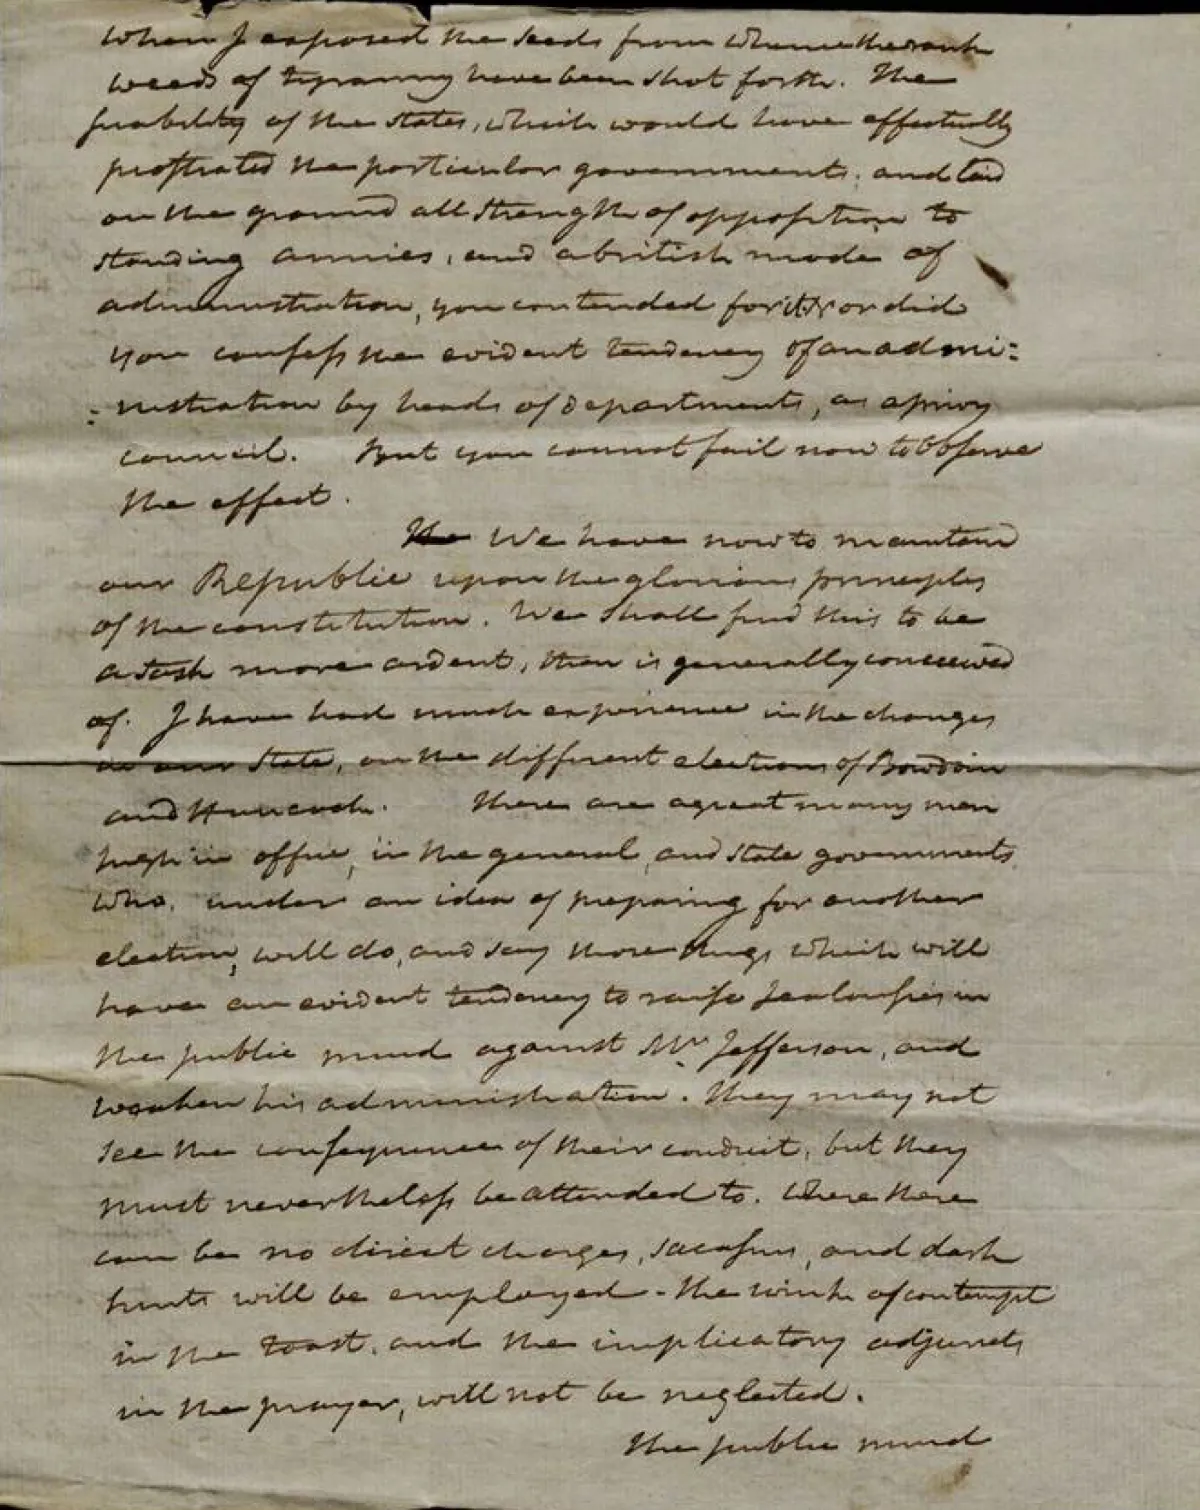 when I exposed the seeds from whence the rank
weeds of tyranny have been shot forth. The
suability of the states, which would have effectually
prostrated the particular governments, and laid
on the ground all strength of opposition to
standing armies, and a british mode of
administration, you contended for or did
you confess the evident tendency of an admi=
=nistration by heads of departments, as a privy
council. But you cannot fail now to observe
the effect.
The We have now to maintain
our Republic upon the glorious principles
of the constitution. We shall find this to be
a task more ardent, than is generally conceived
of. I have had much experience in the changes
in our State, on the different elections of Bowdoin
and Hancock. There are a great many men
high in office, in the general, and state governments
who, under an idea of preparing for another
election, will do, and say those things which will
have an evident tendency to raise Jealousies in
the public mind against Mr Jefferson, and
weaken his administration. They may not
see the consequences of their conduct, but they
must nevertheless be attended to. Where there
can be no direct charges, and dark
hints will be employed - the wink of contempt
in the toast, and the implicatory adjuncts
in the prayer, will not be neglected.
The public mind